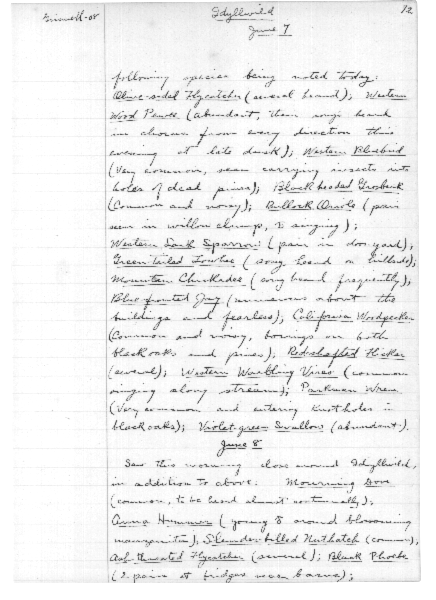 Grinnell-08
12
Idyllwild
June 7
following species being noted today:
Olive-sided Flycatcher (several heard); Western
Wood Pewee (abundant, their songs heard
in chorus from every direction this
evening at late dusk); Western Bluebird
(Very common, seen carrying insects into
holes of dead pines); Black-headed Grosbeak
(Common and noisy); Bullock Oriole (pair
seen in willow clump, ♂ singing);
Western Lark Sparrow (pair in dooryard);
Green-tailed Towhee (song heard on hillside);
Mountain Chickadee (song heard frequently);
Blue-fronted Jay (numerous about the
buildings and fearless); California Woodpecker
(Common and noisy, borings on both
black oaks and pines); Red-shafted Flicker
(several); Western Warbling Vireo (common
singing along stream); Parkman Wren
(Very common and entering knotholes in
black oaks); Violet-green Swallow (abundant).
June 8
Saw this morning close around Idyllwild,
in addition to above: Mourning Dove
(common, to be heard almost continually);
Anna Hummer (young ♂ around blossoming
manzanita); Slender-billed Nuthatch (common);
Ash-throated Flycatcher (several); Black Phoebe
(2 pairs at bridges near barns);